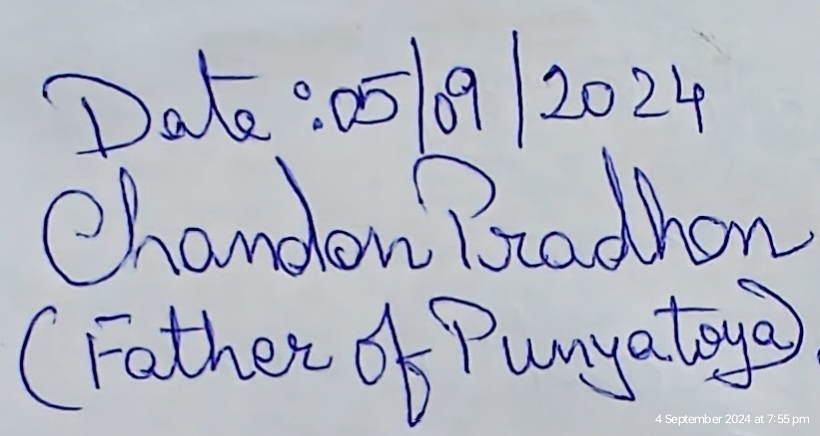 Date :05/09/2024
Chandan Pradhan
(Father of Punyatoya).
4 September 2024 at 7:55 pm